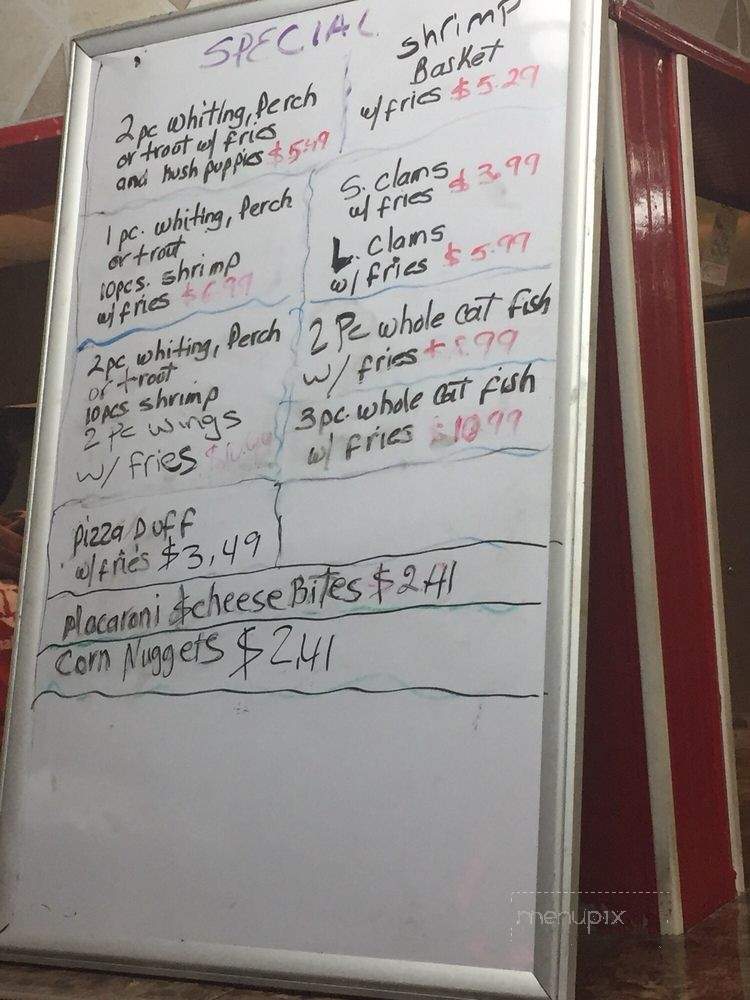 SPECIAL
2pc whiting, Perch
or trout w/ fries
and hush puppies $5.49
1 pc. whiting, Perch
or trout
10pcs. shrimp
w/ fries $6.99
2pc. whiting, Perch
or trout
10pcs shrimp
2 Pc wings
w/ fries
Pizza Puff
w/fries $3,49
shrimp
Basket
w/fries $5.29
S. clams $3.99
w/ fries
L. clams
w/fries $5.99
2 Pc whole cat fish
w/ fries
3 pc. whole cat fish
w/ fries $10.99
Macaroni & cheese Bites $2.41
Corn Nuggets $2,41
menupix